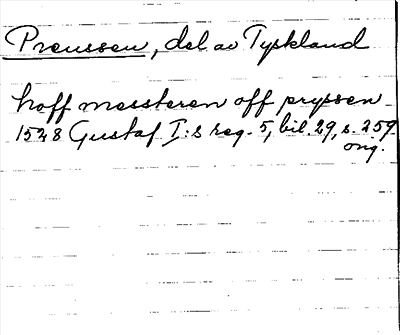 Preussen, del av Tyskland
hoff messteren off pryssen
1528 Gustaf I:s reg. 5, bil. 29, s. 259.
org.